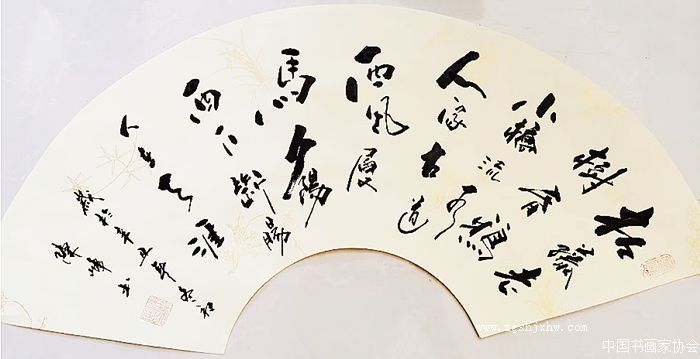 枯藤老
樹昏鴉
小橋流水
人家古道
西風瘦
馬夕陽
西下斷腸
人在天涯
於辛丑年
陳峰書
www.zgshjxhw.com
中国书画家协会